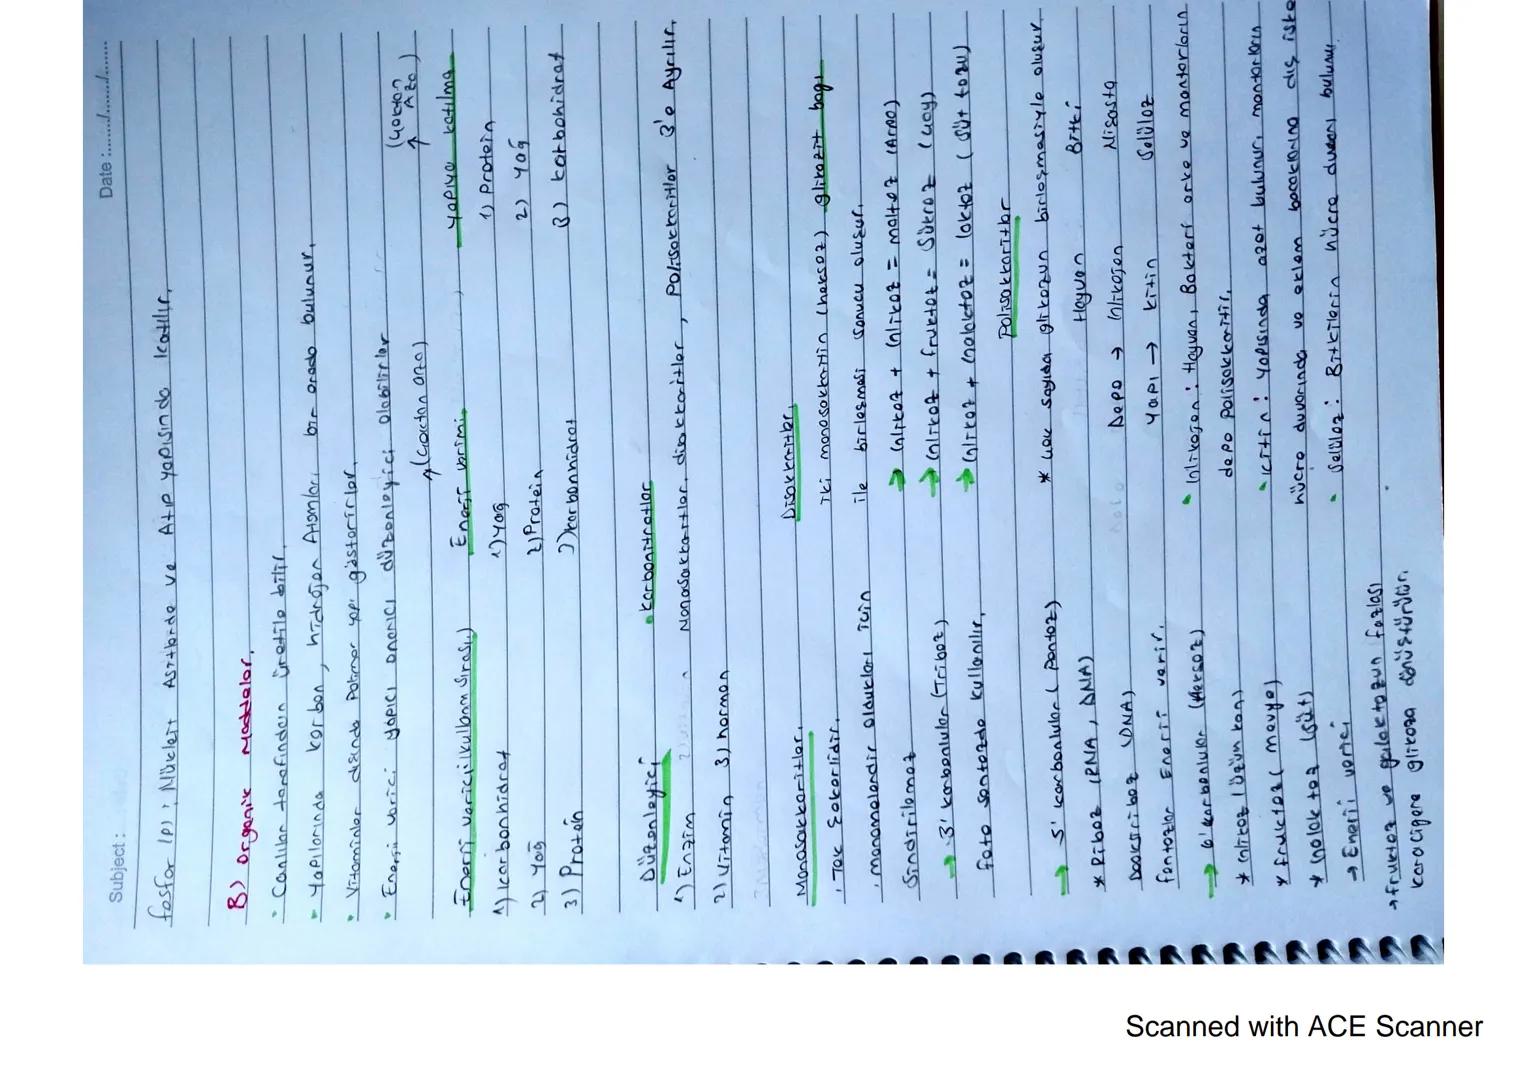 Subject: Date:......./......./.......
fosfor (P) : Nükleit Asitbde ve Atp yapısında katılır.
B) Organik Maddeler.
• Canlılar tarafından üretile bilir.
• Yapılarında karbon, hidrojen Atomları bir arada bulunur.
• Vitaminler dışında Polimer yapı gösterirler.
• Enerji verici yapıcı onarıcı düzenleyici olabilirler
(Çoktan aza) (Çoktan Aza)
Enerji verici(kullanım sırası) Enerji verimi Yapıya katılma
1) karbonhidrat 1) Yağ 1) Protein
2) Yağ 2) Protein 2) Yağ
3) Protein 3) karbonhidrat 3) karbohidrat
Düzenleyici
1) Enzim
2) Vitamin 3) hormon
• karbonitratlar
Monosakkaritler, disakkaritler, Polisakkaritler 3'e Ayrılır.
Monosakkaritler
• Tek Şekerlidir.
• monomelerdir oldukları için
Sindirilemez
→ 3' karbonlular (Trioz)
foto sentezde kullanılır.
→ 5' karbonlular (Pentoz)
* Riboz (RNA, DNA)
Deoksiriboz (DNA)
fentozlar Enerji verir.
→ 6' karbonlular (Heksoz)
* Glikoz (üzüm kan)
* fruktoz (meyve)
* Galaktoz (süt)
→ Enerji verici
→ fruktoz ve galaktozun fazlası
karaciğere glikoza dönüştürülür.
Disakkaritler
iki monosakkaritin (heksoz) glikozit bağı
ile birleşmesi sonucu oluşur.
→ Glikoz + Glikoz = maltoz (Arpa)
→ Glikoz + fruktoz = Sükroz (çay)
→ Glikoz + Galaktoz = laktoz (Süt tozu)
Polisakkaritler
* çok sayıda glikozun birleşmesiyle oluşur.
Hayvan Bitki
Depo → Glikojen Nişasta
Yapı → kitin Selüloz
• Glikojen : Hayvan, Bakteri arke ve mantarların
depo Polisakkariti.
• kitin : Yapısında azot bulunur, mantarların
hücre duvarında ve eklem bacaklılına dış iske
• Selüloz : Bitkilerin hücre duvarı bulunu.
Scanned with ACE Scanner